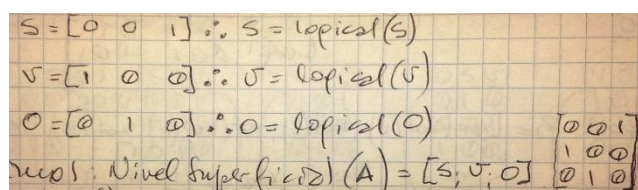 S = [0 0 1] ∴ S = logical(S)
V = [1 0 0] ∴ V = logical(V)
O = [0 1 0] ∴ O = logical(O)
: Nivel Superficial (A) = [S; V; O] [0 0 1
1 0 0
0 1 0]